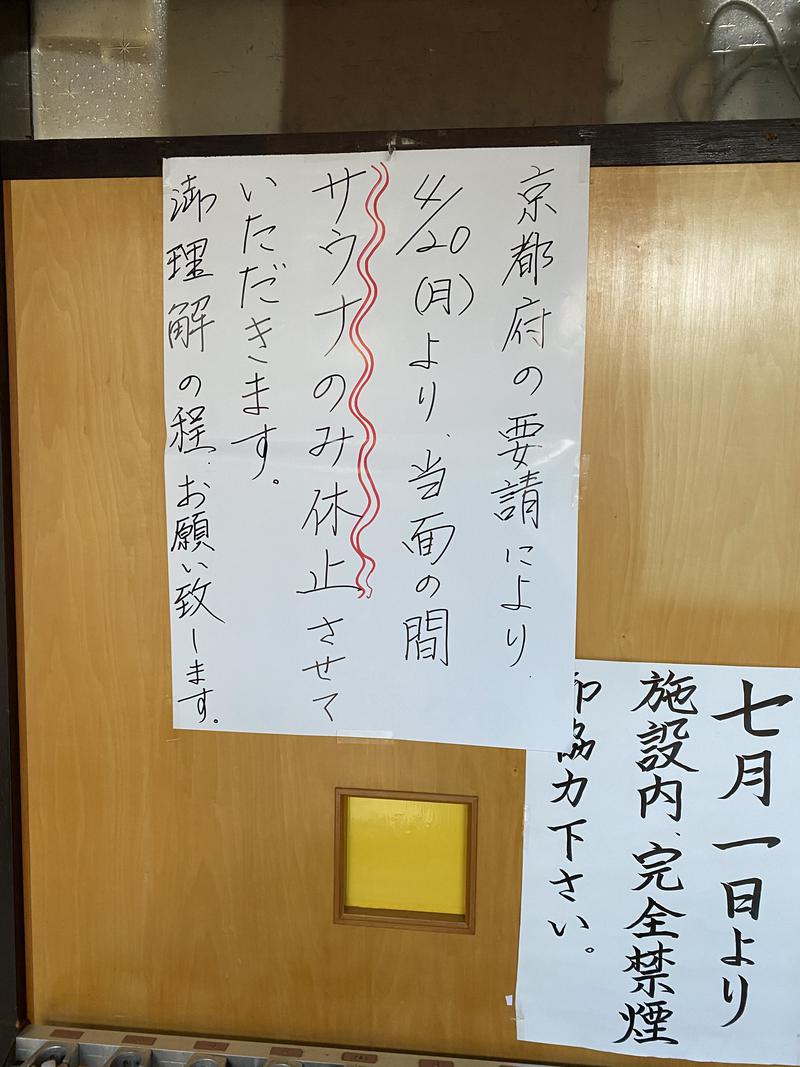 京都府の要請により、
4/20(月)より、当面の間
サウナのみ休止させて
いただきます。
御理解の程、お願い致します。
七月一日より
施設内、完全禁煙
御協力下さい。